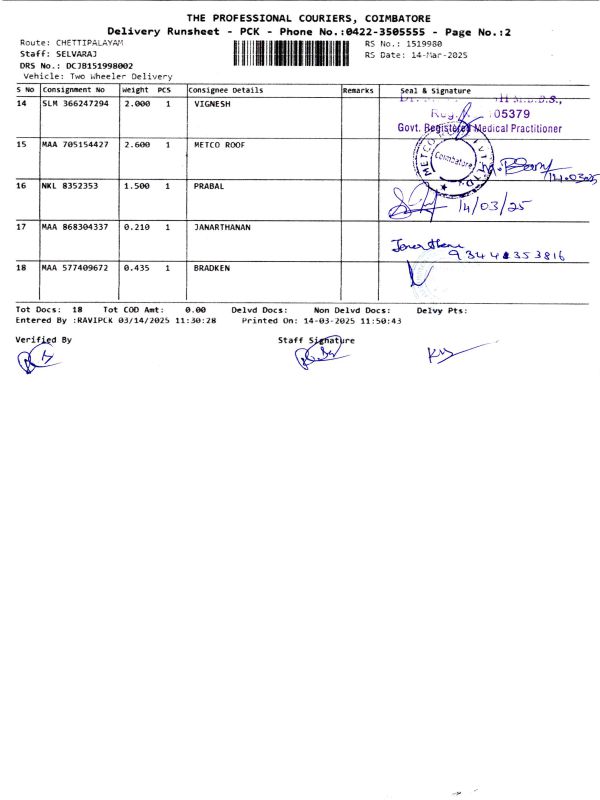 THE PROFESSIONAL COURIERS, COIMBATORE
Delivery Runsheet - PCK - Phone No.:0422-3505555 - Page No.:2
Route: CHETTIPALAYAM RS No.: 1519980
Staff: SELVARAJ RS Date: 14-Mar-2025
DRS No.: DCJB151998002
Vehicle: Two Wheeler Delivery
S No Consignment No Weight PCS Consignee Details Remarks Seal & Signature
14 SLM 366247294 2.000 1 VIGNESH
05379
Govt. Registered Medical Practitioner
15 MAA 705154427 2.600 1 METCO ROOF
METCO
Coimbatore
14.03.25
16 NKL 8352353 1.500 1 PRABAL
14/03/25
17 MAA 868304337 0.210 1 JANARTHANAN
18 MAA 577409672 0.435 1 BRADKEN
Tot Docs: 18 Tot COD Amt: 0.00 Delvd Docs: Non Delvd Docs: Delvy Pts:
Entered By :RAVIPCK 03/14/2025 11:30:28 Printed On: 14-03-2025 11:50:43
Verified By Staff Signature